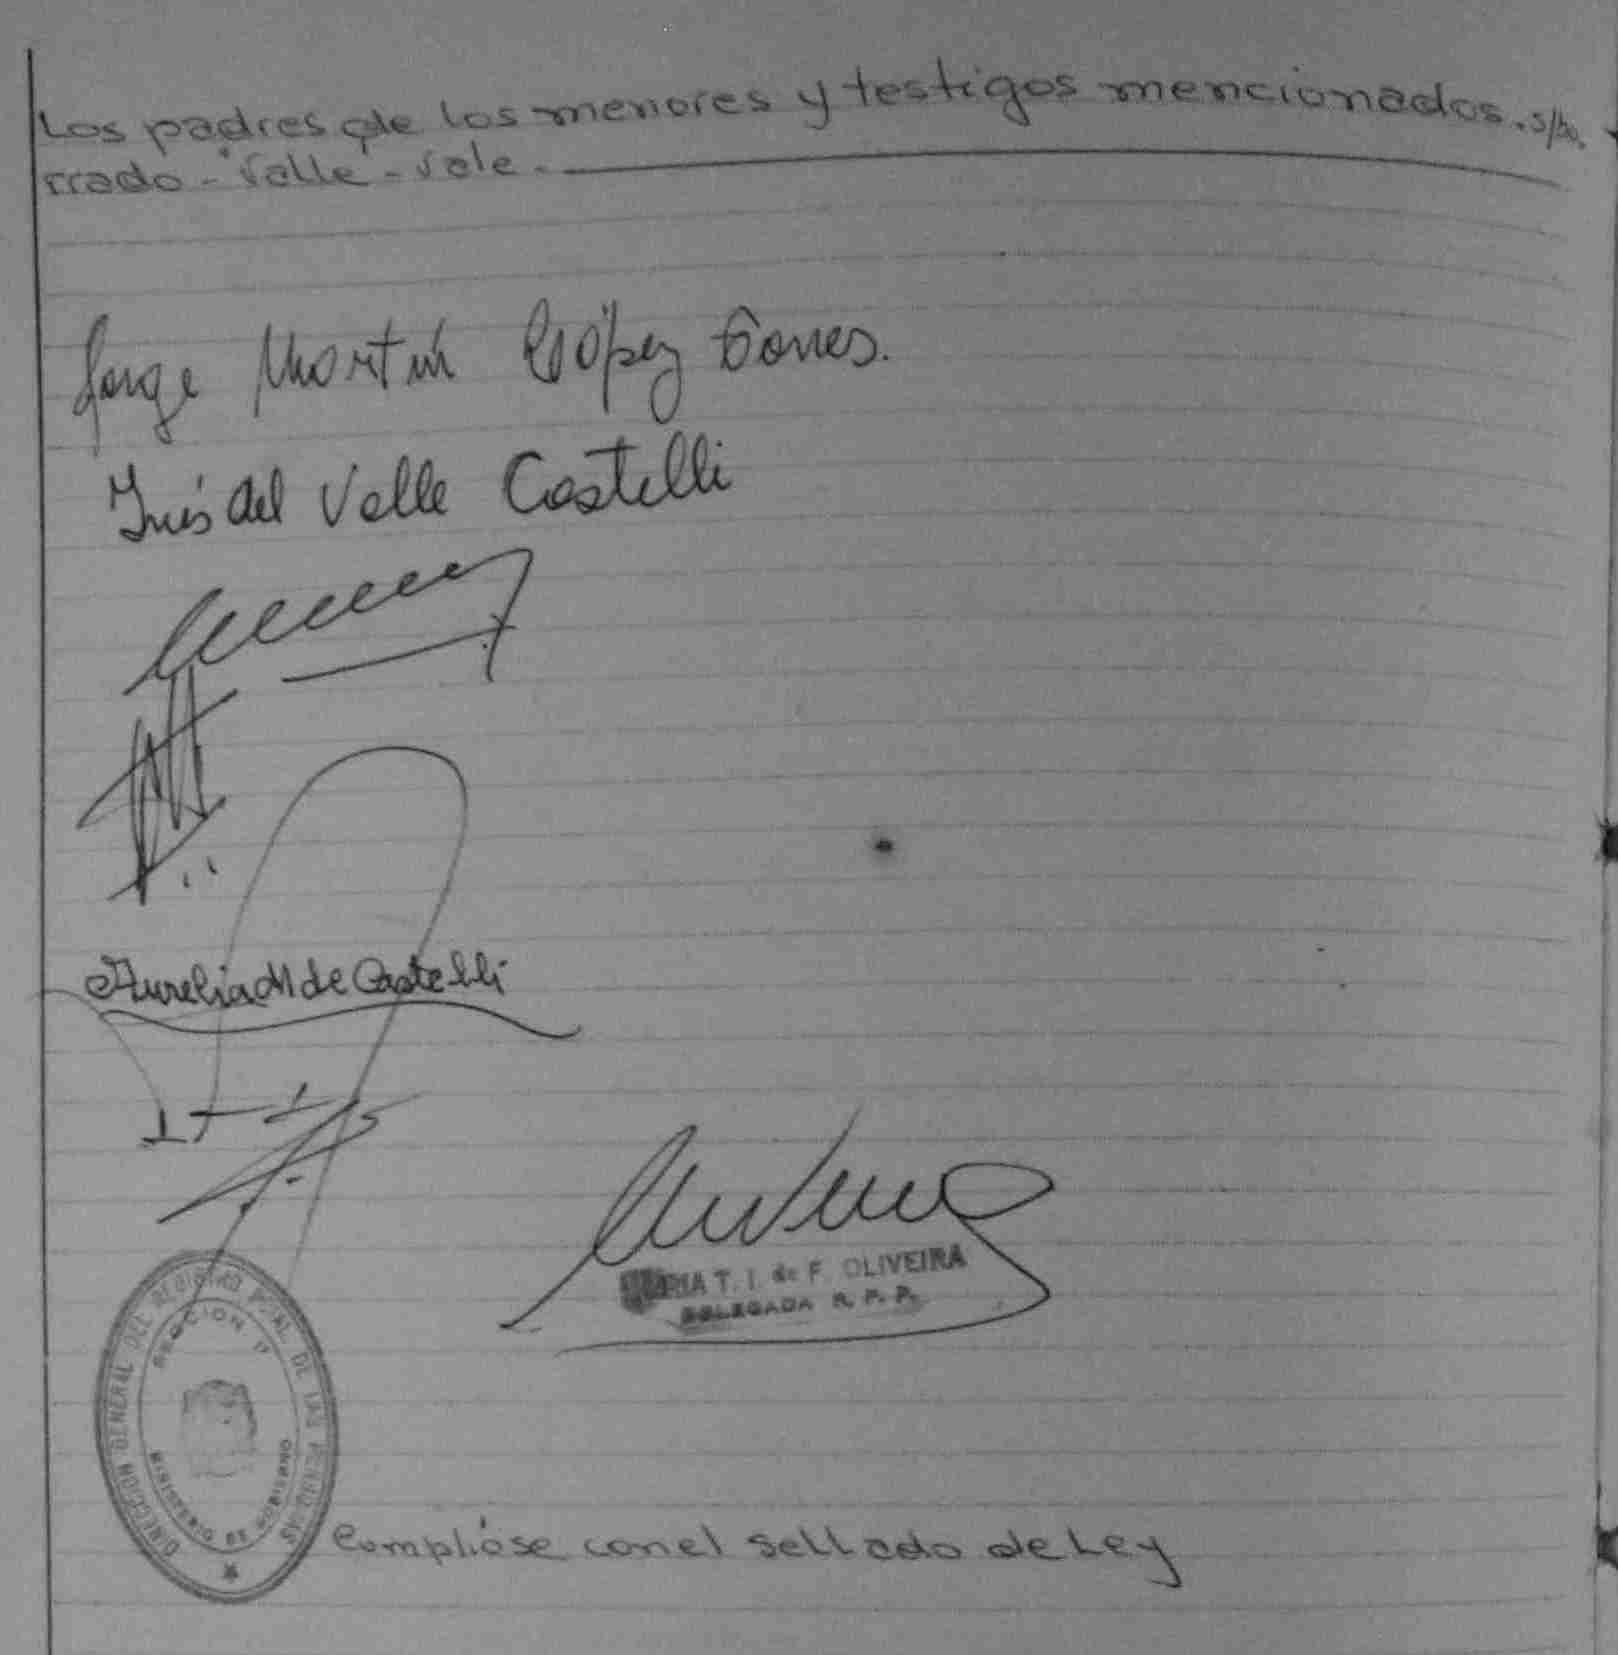 Los padres de los menores y testigos mencionados. s/bo.
rrado - "Valle" - vale.
Jorge Martín López Torres.
Inés del Valle Castelli
Aurelia M de Castelli
RIA T. I. de F. OLIVEIRA
DELEGADA R. P. P.
DIRECCION GENERAL DEL REGISTRO DE LAS PERSONAS
SECCION
Cumplióse con el sellado de Ley